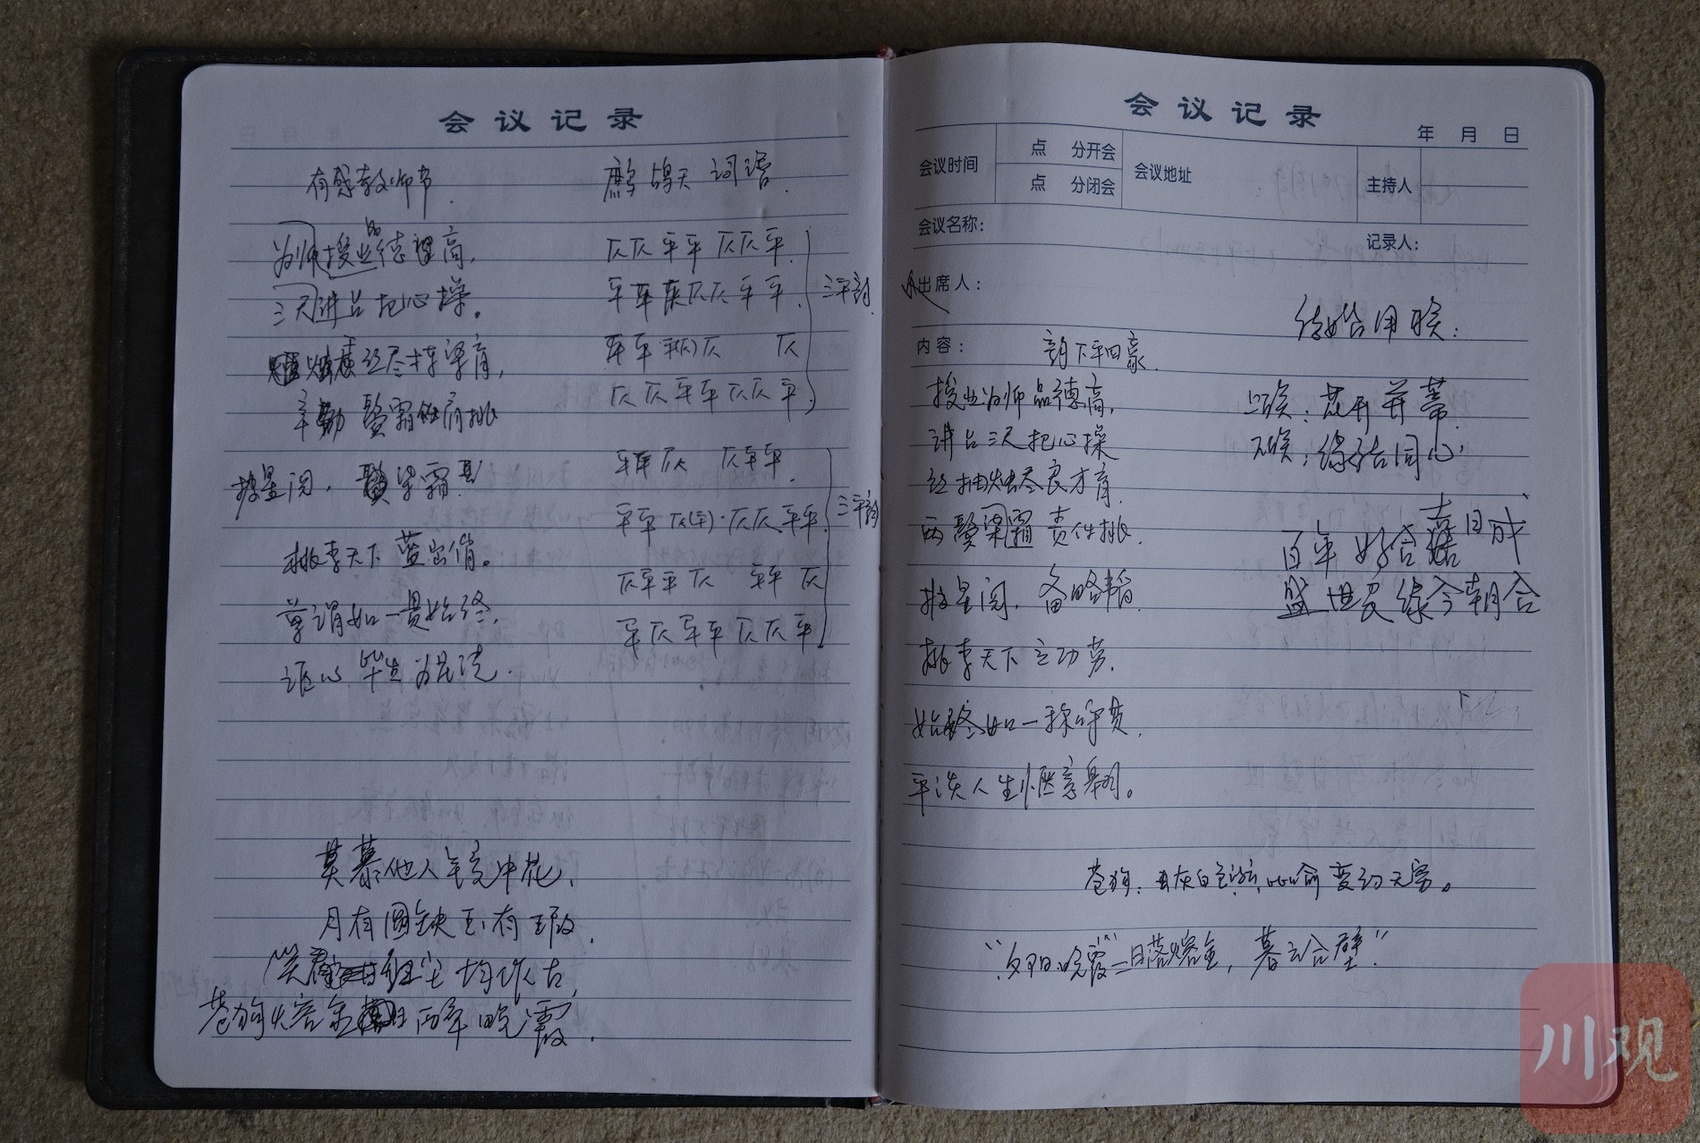 会议记录
有感教师节.
鹧鸪天 词谱.
为师授业品德高,
三尺讲台把心操。
烛尽栋梁育,
辛勤鬓霜肩挑
披星阅, 染霜
桃李天下蓝出俏。
如一贯始终,
毕生为
仄仄平平仄仄平.
平平仄仄平平.
三平韵.
平平仄 仄
仄仄平平仄仄平.
平平仄 仄平平.
平平仄(平)·仄仄平平.
三平韵
仄平平仄 平平仄
平仄平平仄仄平
莫慕他人镜中花,
月有圆缺玉有瑕.
笑 均作古,
苍狗熔金 两年晚霞.
会议记录
年 月 日
会议时间
点 分开会
点 分闭会
会议地址
主持人
会议名称:
记录人:
出席人:
内容:
韵下平四豪.
授业为师品德高,
讲台三尺把心操
烛尽良才育.
两鬓染霜责任挑.
披星阅, 备略韬.
桃李天下立功劳.
始终如一
平淡人生惬意翱。
结婚用联:
上联:花开并蒂
下联:缘结同心
百年好合喜日成
盛世良缘今朝合
苍狗: 灰白色 比喻变幻无穷。
“夕阳晚霞”—日落熔金, 暮云合璧.”
川观